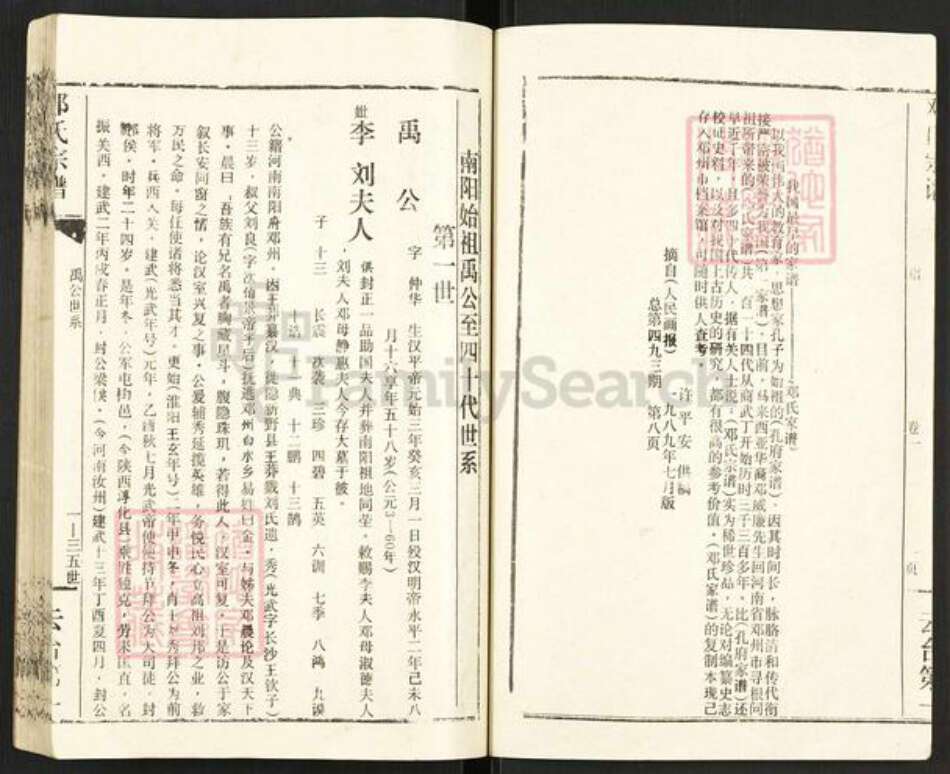 我国最早的家谱——邓氏家谱
以我国伟大的教育家，思想家孔子为始祖的（孔府家谱），因其时间长，脉胳清和传代衔
接严密被荣誉为我国（第一家谱）。目前，马来西亚华裔邓威廉先生回河南省邓州市寻根问
祖所带来的（邓氏家谱）共一百一十四代从商武丁开始历时三千三百多年，比（孔府家谱）还
早近千年，且多四十代传人，据有关人士说：（邓氏宗谱）实为稀世珍品，无论对编纂史志
校证史料，以及对我国上古历史的研究，都有很高的参考价值，（邓氏家谱）的复制本现已
存入邓州市档案馆，可随时供人查考。
许平安 供稿
摘自（人民画报）一九八九年七月版
总第四九三期 第八页
卷一
南阳始祖禹公至四十代世系
第一世
禹公 字 仲华 生汉平帝元始三年癸亥三月一日殁汉明帝永平二年己未八
月十六享年五十八岁（公元3—60年）
妣 李 刘夫人 俱封正一品助国夫人并葬南阳祖地同茔，敕赐李夫人邓母淑德夫人
，刘夫人邓母静惠夫人今存大墓于彼。
子 十三 长震 次袭 三珍 四碧 五英 六训 七季 八鸿 九谟
十 浩 十一典 十二鹏 十三鹄
公籍河南南阳府邓州，因王莽篡汉，徙隐新野县王莽戮刘氏遗，秀（光武字长沙王钦子）
十三岁，叔父刘良 抚逃邓州白水乡易姓曰金，与姊夫邓晨论及汉天下
事，晨曰，吾族有兄名禹者胸藏星斗，腹隐珠玑，若得此人，汉室可复，于是访公于家
叙长安同窗之情，论汉室兴复之事，公爱辅秀延揽英雄，务悦民心立高祖刘邦之业，救
万民之命，每任使诸将悉当其才，更始（淮阳王玄年号）二年甲申冬，肖王刘秀拜公为前
将军，兵西入关，建武（光武年号）元年，乙酉秋七月光武帝使使持节拜公为大司徒，封
酂侯，时年二十四岁，是年冬，公军屯栒邑，（今陕西淳化县）乘胜独克，劳来匡直，名
振关西，建武二年丙戌春正月，封公梁侯，（今河南汝州）建武十三年丁酉夏四月，封公
邓氏宗谱
禹公世系
一—三五世